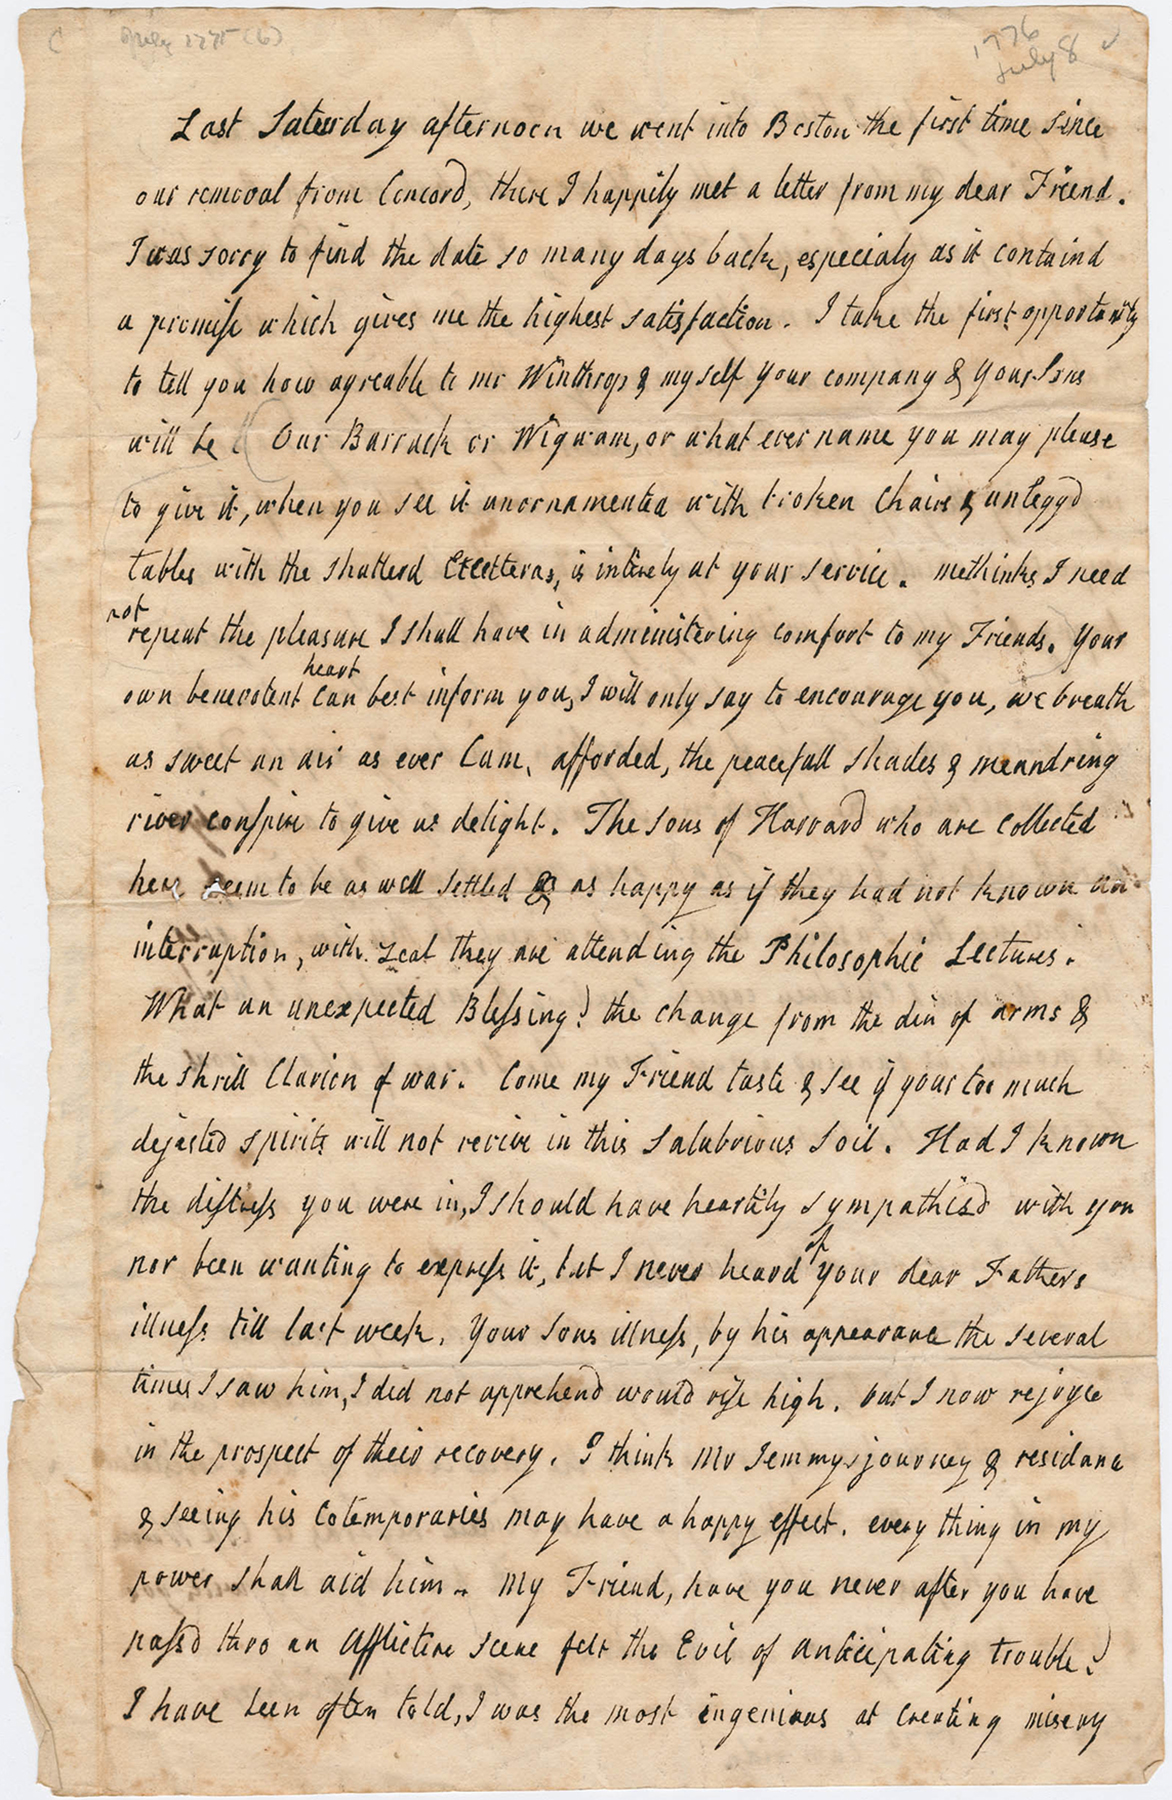 July 1775 (6)
1776
July 8
Last Saturday afternoon we went into Boston the first time since
our removal from Concord, there I happily met a letter from my dear Friend.
I was sorry to find the date so many days back, especialy as it containd
a promise which gives me the highest satisfaction. I take the first opportunity
to tell you how agreable to mr Winthrop & myself your company & your Sons
will be Our Barrack or Wigwam, or what ever name you may please
to give it, when you see it unornamented with broken Chairs & unleggd
tables with the shatterd Etcetteras, is intirely at your service. methinks I need
not
repeat the pleasure I shall have in administering comfort to my Friends. Your
heart
own benevolent can best inform you, I will only say to encourage you, we breath
as sweet an air as ever Cam, afforded, the peacefull shades & meandring
river conspire to give us delight. The sons of Harvard who are collected
here seem to be as well settled & as happy as if they had not known an
interruption, with zeal they are attending the Philosophic Lectures.
What an unexpected Blessing! the change from the din of arms &
the shrill Clarion of war. Come my Friend taste & see if your too much
dejected spirits will not revive in this salubrious soil. Had I known
the distress you were in, I should have heartily sympathisd with you
of
nor been wanting to express it, but I never heard your dear Fathers
illness till last week. Your sons illness, by his appearance the several
times I saw him, I did not apprehend would rise high. but I now rejoyce
in the prospect of their recovery. I think Mr Jemmys journey & residance
& seeing his Cotemporaries may have a happy effect. every thing in my
power shall aid him. My Friend, have you never after you have
passd thro an afflictive scene felt the Evil of anticipating trouble?
I have been often told, I was the most ingenious at creating misery